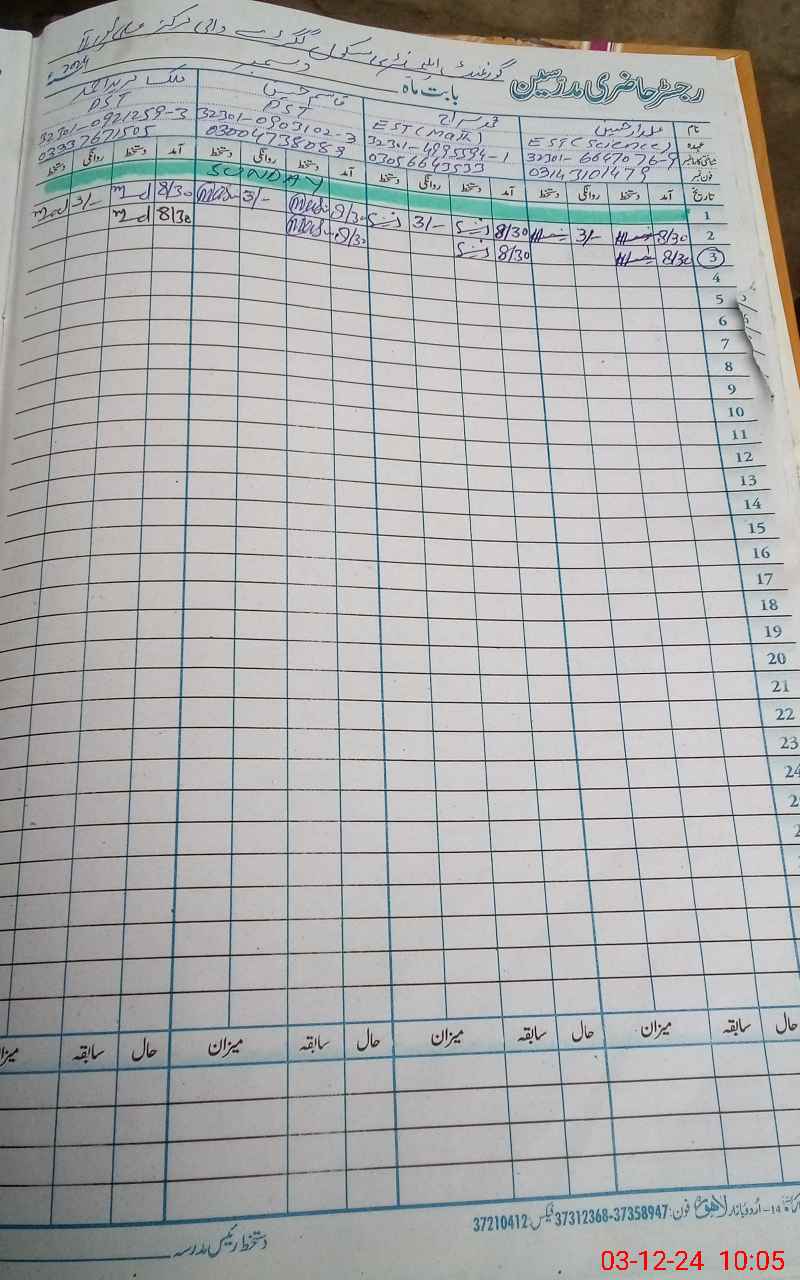 گورنمنٹ ایلیمنٹری سکول
رجسٹر حاضری مدرسین
بابت ماہ دسمبر 2024ء
نام
قاسم حسین
عہدہ EST (Science) EST (Math) PST PST
32301-6647076-9 32301-4995594-1 32301-0903102-3 32301-0921259-3
فون نمبر 03143101479 03056643533 03004738089 03337671505
تاریخ آمد دستخط روانگی دستخط آمد دستخط روانگی دستخط آمد دستخط روانگی دستخط آمد دستخط روانگی دستخط
1 SUNDAY
2 8/30 3/- 8/30 3/- 8/30 3/- 8/30 3/-
3 8/30 8/30 8/30 8/30
4
5
6
7
8
9
10
11
12
13
14
15
16
17
18
19
20
21
22
23
24
حال سابقہ میزان حال سابقہ میزان حال سابقہ میزان حال سابقہ میزان
14-اُردو بازار لاہور فون: 37358947-37312368 فیکس: 37210412
دستخط رئیس مدرسہ
03-12-24 10:05